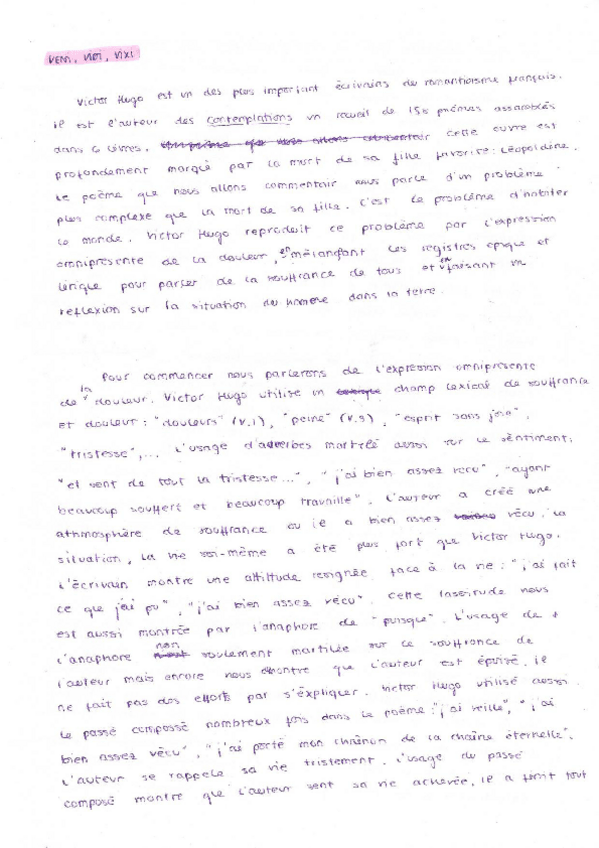 VENI, VIDI, VIXI
Victor Hugo est un des plus important écrivains du romantisme français.
il est l'auteur des contemplations un recueil de 156 poémes assamblés
dans 6 livres. cette ouvre est
profondement marqué par la mort de sa fille favorite: Léopoldine.
Le poème que nous allons commentair nous parle d'un problème
plus complexe que la mort de sa fille. c'est le problème d'habiter
le monde. Victor Hugo reproduit ce problème par l'expression
omniprésente de la douleur, en mélangant les registres epique et
lirique pour parler de la souffrance de tous et en faisant un
reflexion sur la situation de homme dans la terre.
Pour commencer nous parlerons de l'expression omniprésente
de la douleur. Victor Hugo utilise un champ lexical de souffrance
et douleur: "douleurs" (v.1), "peine" (v.9), "esprit sans joie",
"tristesse",... L'usage d'adverbes martelé aussi sur le sentiment:
"et sont de tout la tristesse...", "j'ai bien assez vecu", "ayant
beaucoup souffert et beaucoup travaille". L'auteur a créé une
athmosphère de souffrance ou il a bien assez vécu. La
situation, la vie soi-même a été plus fort que Victor Hugo.
L'écrivain montre une attitude resignée face à la vie: "j'ai fait
ce que j'ai pu", "j'ai bien assez vécu". Cette lassitude nous
est aussi montrée par l'anaphore de "puisque". L'usage de
l'anaphore non soulement martillée sur ce souffrance de
l'auteur mais encore nous montre que l'auteur est épuisé, il
ne fait pas des efforts par s'expliquer. Victor Hugo utilisé aussi
le passé compossé nombreux fois dans le poème: "j'ai veille", "j'ai
bien assez vécu", "j'ai porté mon chaînon de la chaîne éternelle".
L'auteur se rappele sa vie tristement. L'usage du passé
composé montre que l'auteur sent sa vie achevée, il a tout